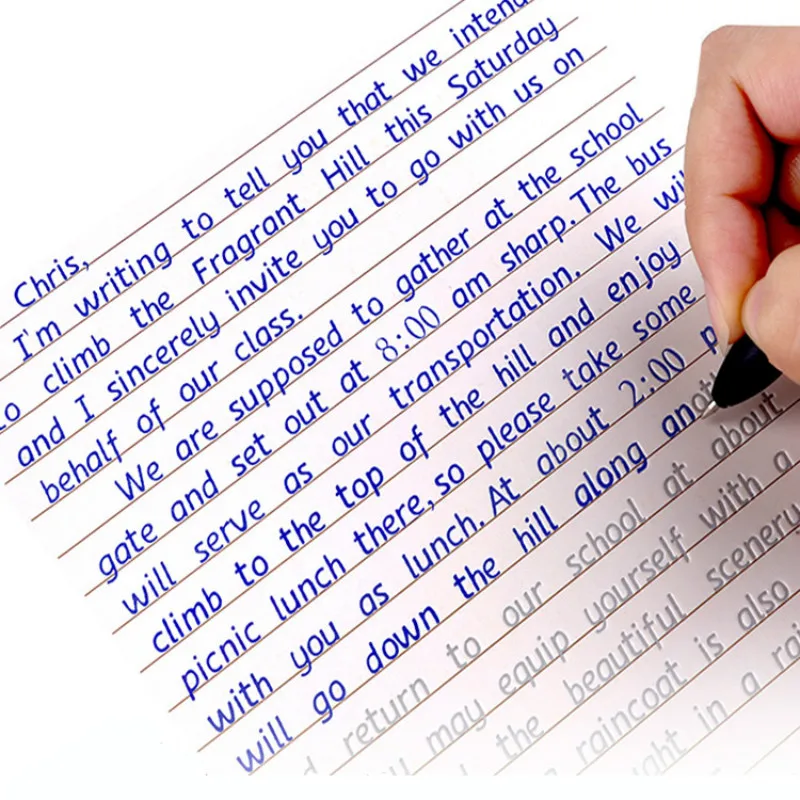 Chris,
I'm writing to tell you that we intend
to climb the Fragrant Hill this Saturday
and I sincerely invite you to go with us on
behalf of our class.
We are supposed to gather at the school
gate and set out at 8:00 am sharp. The bus
will serve as our transportation. We will
climb to the top of the hill and enjoy
picnic lunch there, so please take some
with you as lunch. At about 2:00
will go down the hill along
return to our school at about
may equip yourself with a
the beautiful scenery
raincoat is also
in a